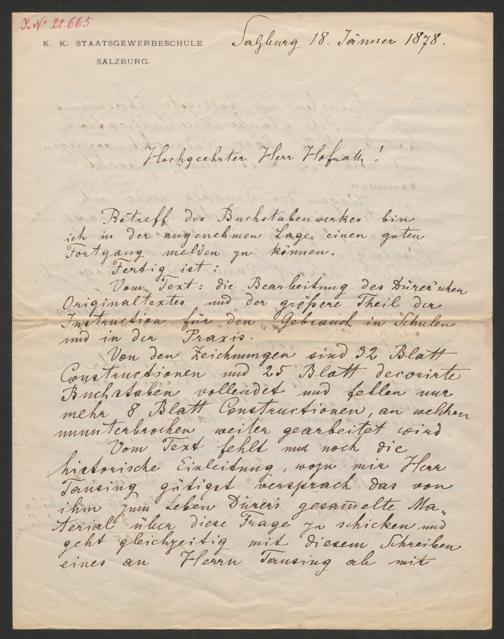 I. Nº 22.665
K. K. STAATSGEWERBESCHULE
SALZBURG.
Salzburg 18. Jänner 1878.
Hochgeehrter Herr Hofrath!
Betreff des Buchstabenwerkes bin
ich in der angenehmen Lage einen guten
Fortgang melden zu können.
Fertig ist:
Vom Text: die Bearbeitung des Dürer'schen
Originaltextes und der größere Theil der
Instruction für den Gebrauch in Schulen
und in der Praxis.
Von den Zeichnungen sind 32 Blatt
Constructionen und 25 Blatt decorirte
Buchstaben vollendet und fehlen nur
mehr 8 Blatt Constructionen, an welchen
ununterbrochen weiter gearbeitet wird
Vom Text fehlt nur noch die
historische Einleitung, wozu mir Herr
Tausing gütigst versprach das von
ihm zum Leben Dürers gesammelte Ma-
terial über diese Frage zu schicken und
geht gleichzeitig mit diesem Schreiben
eines an Herrn Tausing ab mit